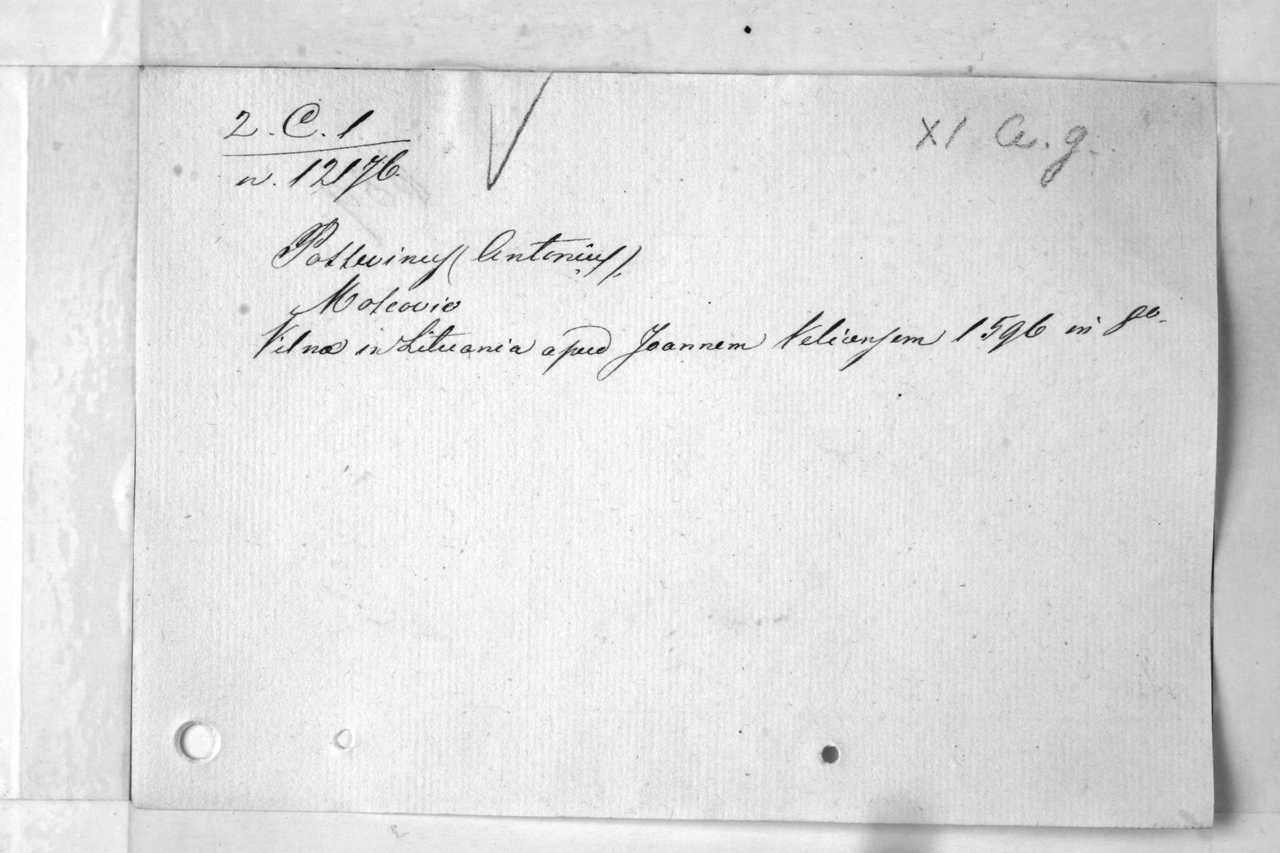 2. C. 1
XI a. g.
n. 12176
Possevinus (Antonius),
Moscovia
Vilnæ in Lituania apud Joannem Velicensem 1596 in 8vo.